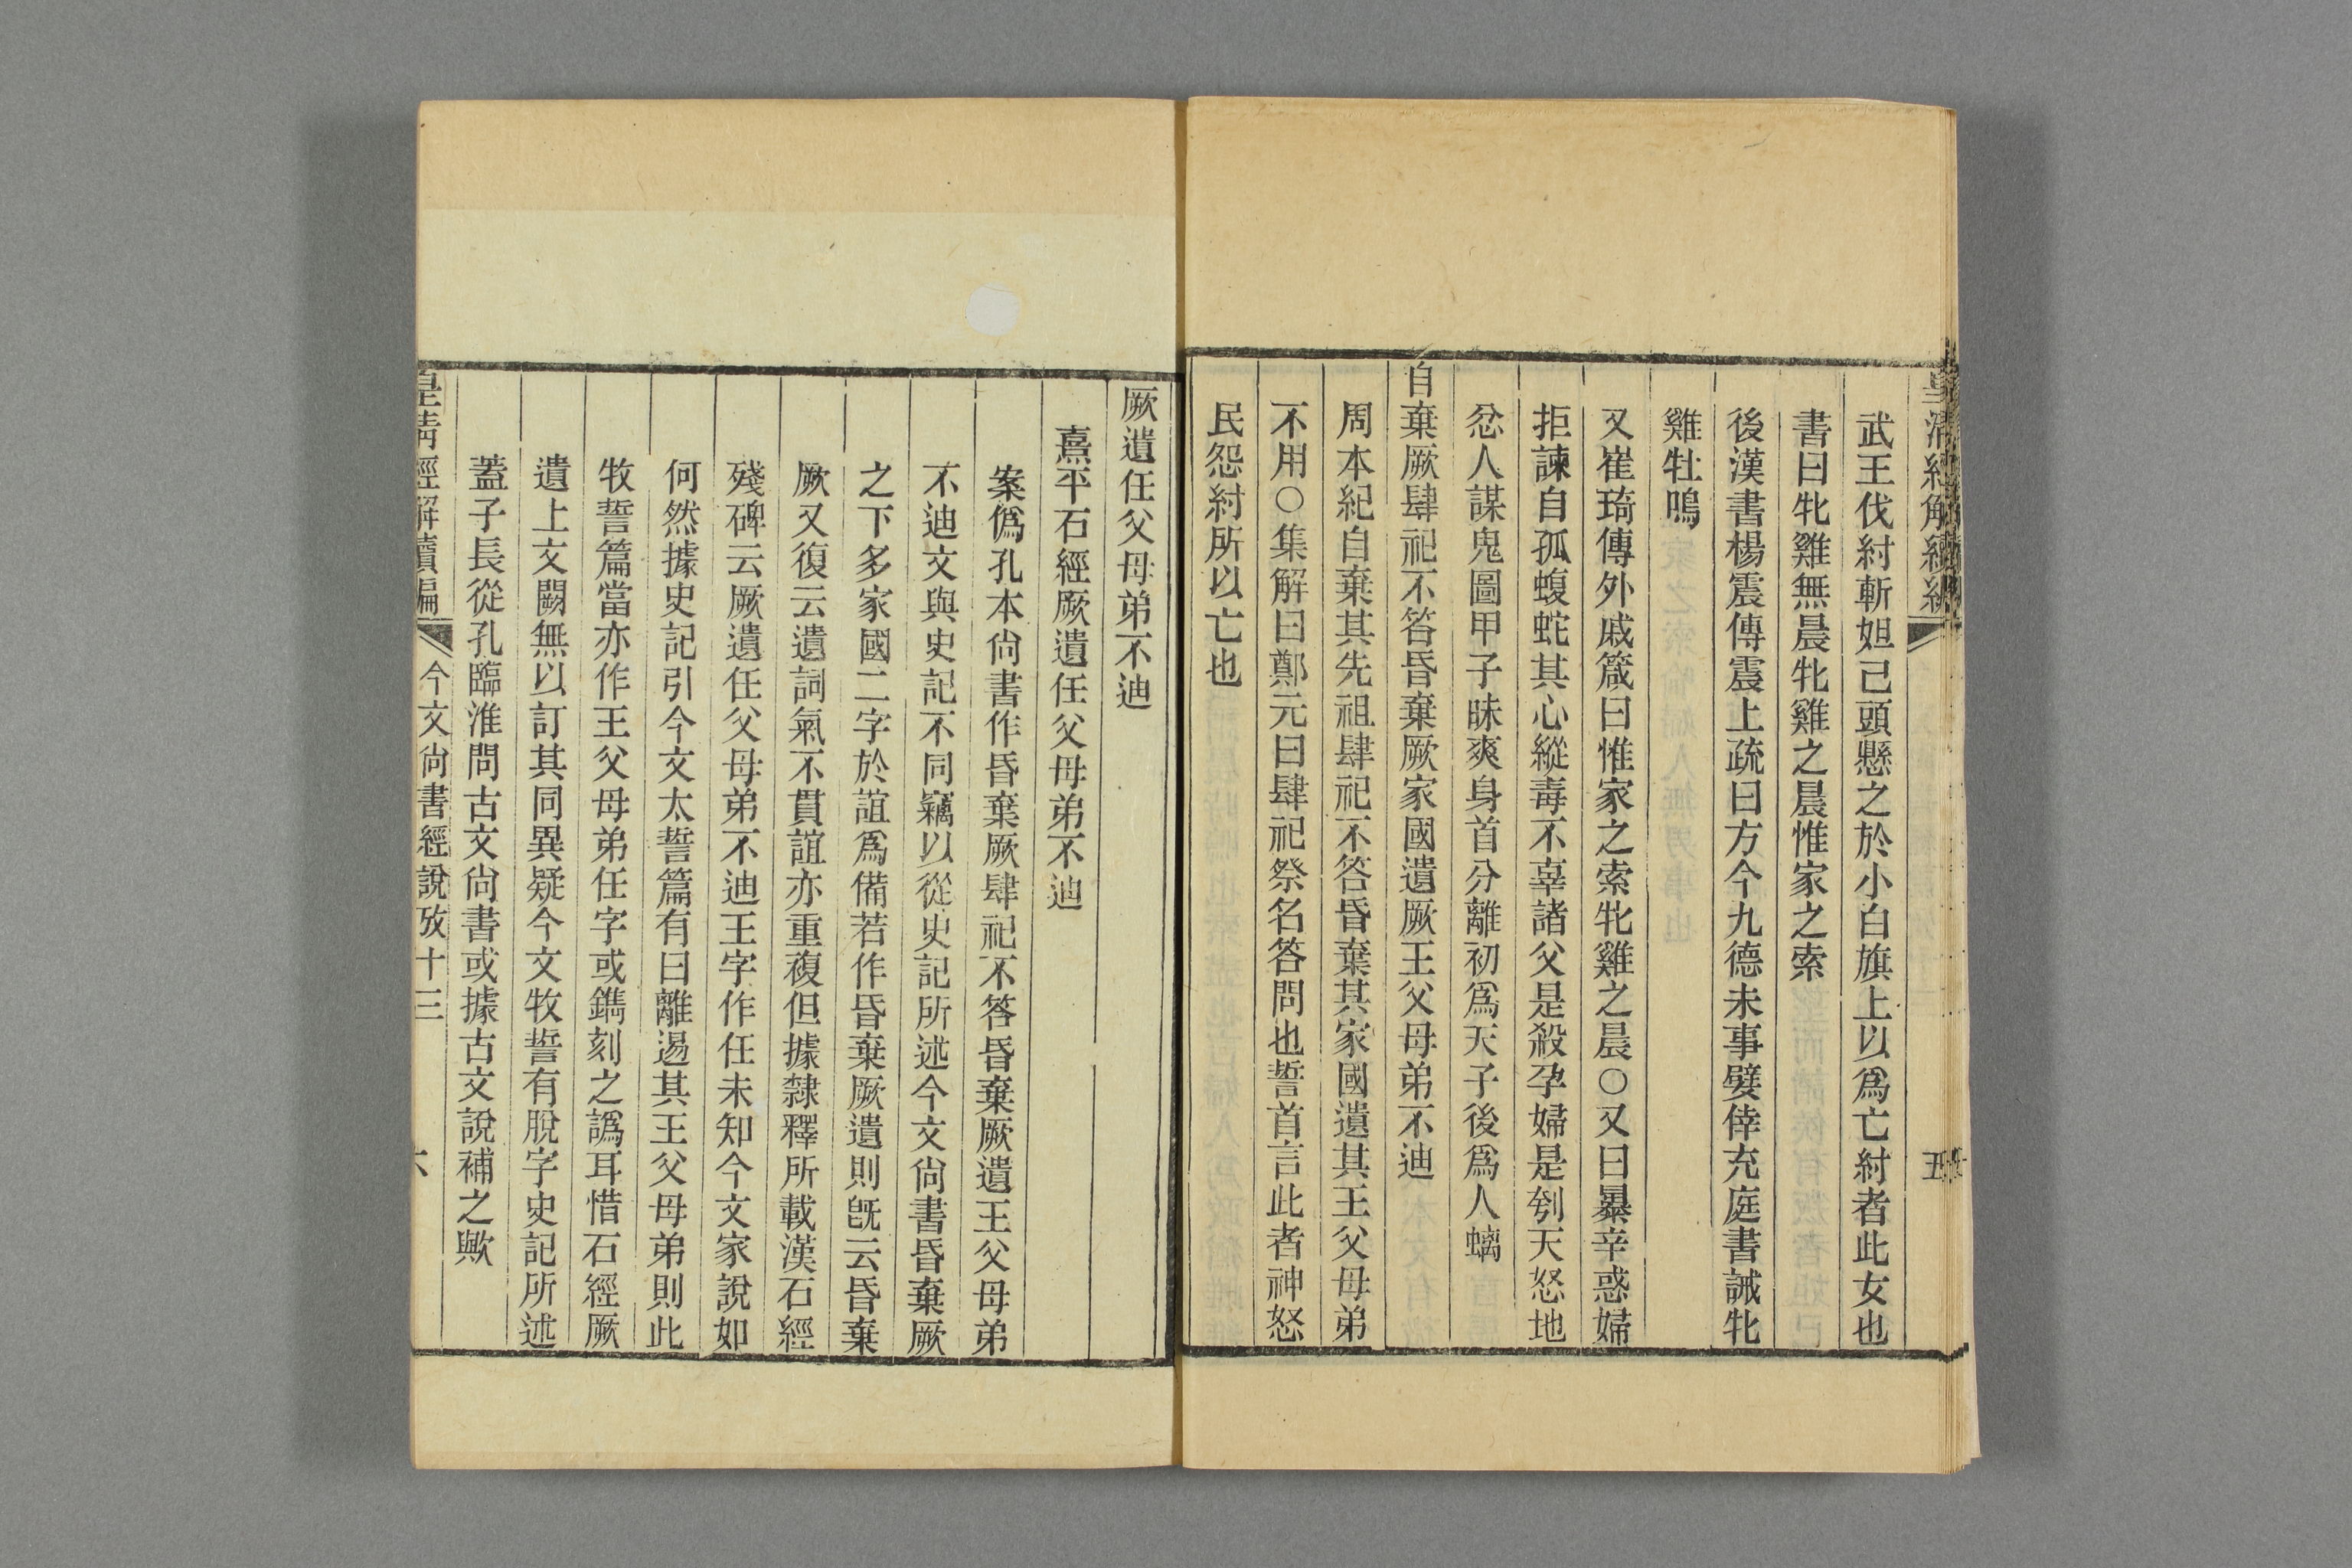 皇清經解續編
五
武王伐紂斬妲己頭懸之於小白旗上以爲亡紂者此女也
書曰牝雞無晨牝雞之晨惟家之索
後漢書楊震傳震上疏曰方今九德未事嬖倖充庭書誡牝
雞牡鳴
又崔琦傳外戚箴曰惟家之索牝雞之晨○又曰暴辛惑婦
拒諫自孤蝮蛇其心縱毒不辜諸父是殺孕婦是刳天怒地
忿人謀鬼圖甲子昧爽身首分離初爲天子後爲人螭
自棄厥肆祀不答昏棄厥家國遺厥王父母弟不迪
周本紀自棄其先祖肆祀不答昏棄其家國遺其王父母弟
不用○集解曰鄭元曰肆祀祭名答問也誓首言此者神怒
民怨紂所以亡也
厥遺任父母弟不迪
熹平石經厥遺任父母弟不迪
案僞孔本尙書作昏棄厥肆祀不答昏棄厥遺王父母弟
不迪文與史記不同竊以從史記所述今文尙書昏棄厥
之下多家國二字於誼爲備若作昏棄厥遺則旣云昏棄
厥又復云遺詞氣不貫誼亦重複但據隸釋所載漢石經
殘碑云厥遺任父母弟不迪王字作任未知今文家說如
何然據史記引今文太誓篇有曰離逷其王父母弟則此
牧誓篇當亦作王父母弟任字或鐫刻之譌耳惜石經厥
遺上文闕無以訂其同異疑今文牧誓有脫字史記所述
蓋子長從孔臨淮問古文尙書或據古文說補之歟
皇清經解續編
今文尙書經說攷十三
六